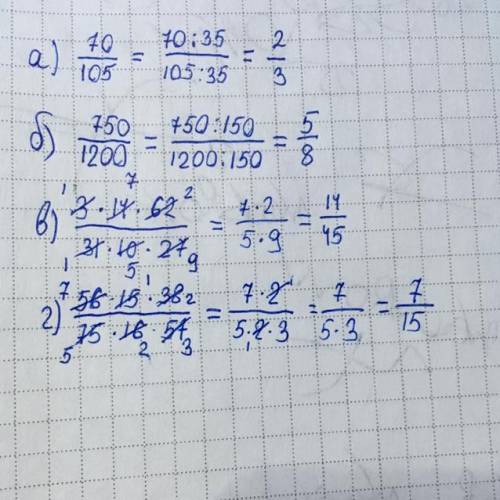 а) 70/105 = 70:35/105:35 = 2/3
б) 750/1200 = 750:150/1200:150 = 5/8
в) 3·14·62/31·10·27 = 7·2/5·9 = 14/45
1 7 2
1 5 9
г) 56·15·38/75·16·57 = 7·2/5·2·3 = 7/5·3 = 7/15
7 1 2 1
5 2 3 1